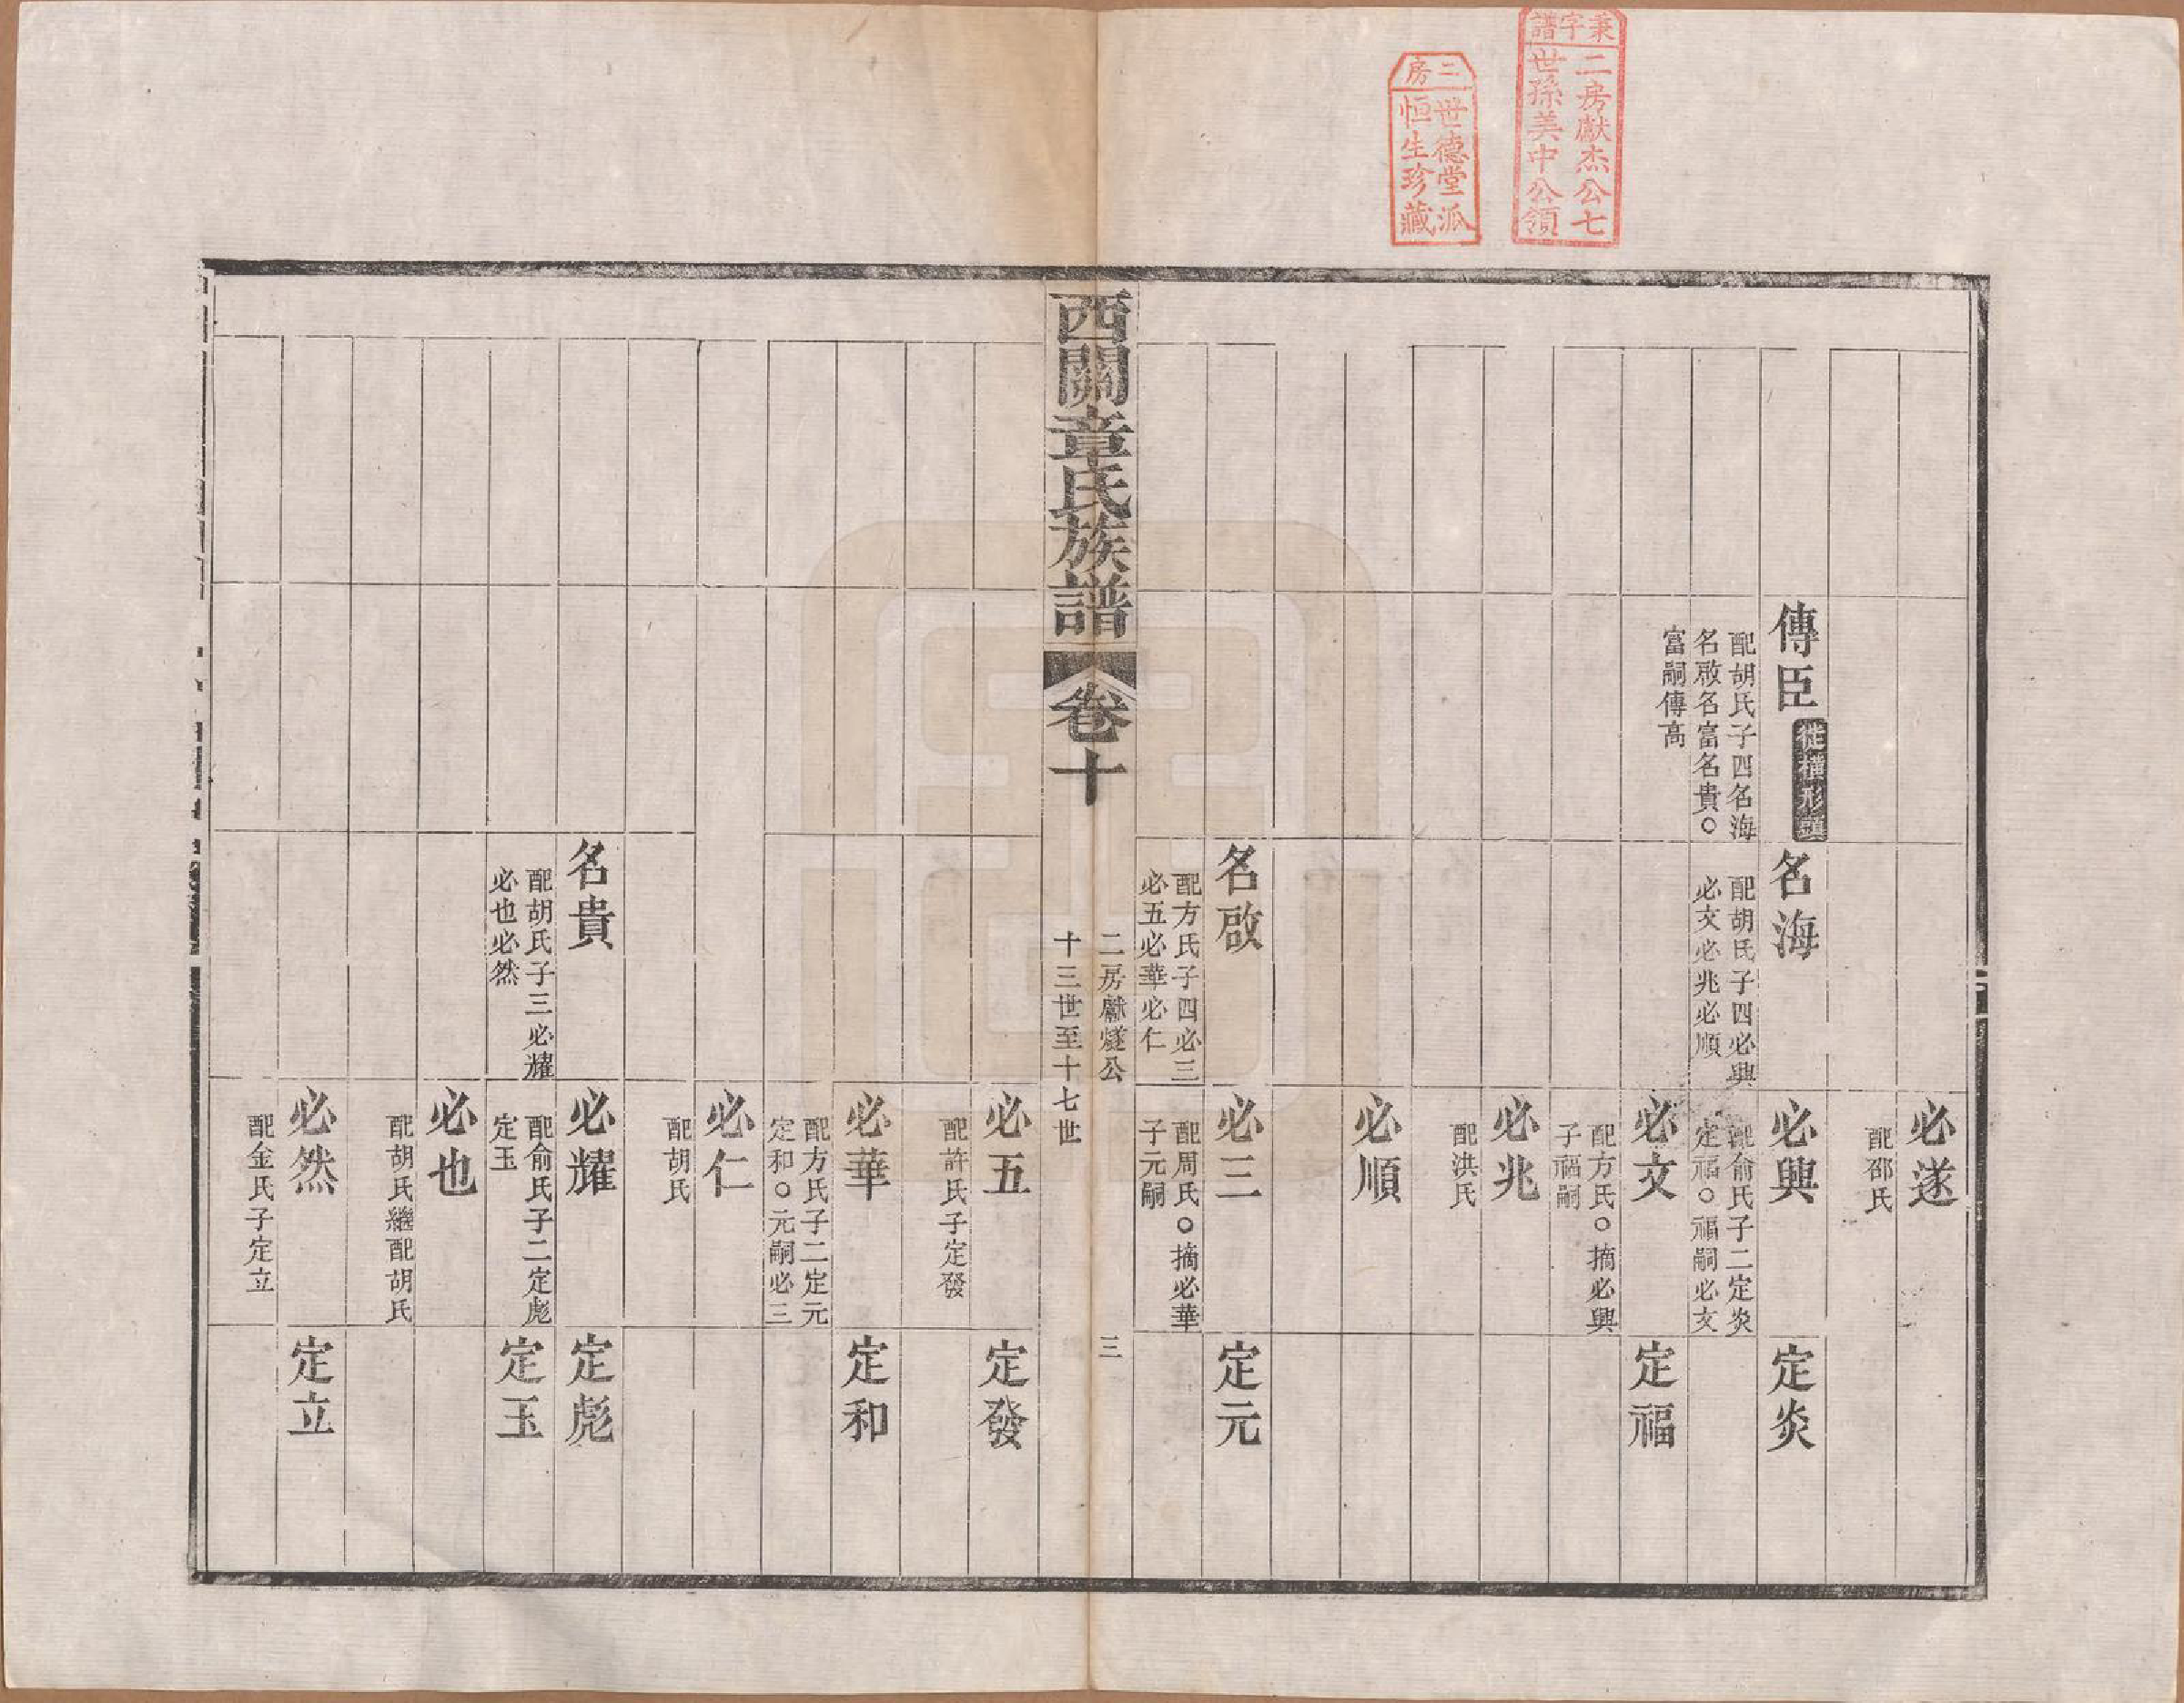 秉字譜
二房獻杰公七
世孫美中公領
三房
世德堂派
恒生珍藏
必遂
配邵氏
傳臣
徙横形頭
配胡氏子四名海
名啟名富名貴○
富嗣傳高
名海
配胡氏子四必興
必文必兆必順
必興
配俞氏子二定炎
定福○福嗣必文
定炎
必文
配方氏○摘必興
子福嗣
定福
必兆
配洪氏
必順
名啟
配方氏子四必三
必五必華必仁
必三
配周氏○摘必華
子元嗣
定元
西關章氏族譜
卷十
二房獻燧公
十三世至十七世
三
必五
配許氏子定發
定發
必華
配方氏子二定元
定和○元嗣必三
定和
必仁
配胡氏
名貴
配胡氏子三必耀
必也必然
必耀
配俞氏子二定彪
定玉
定彪
定玉
必也
配胡氏繼配胡氏
必然
配金氏子定立
定立